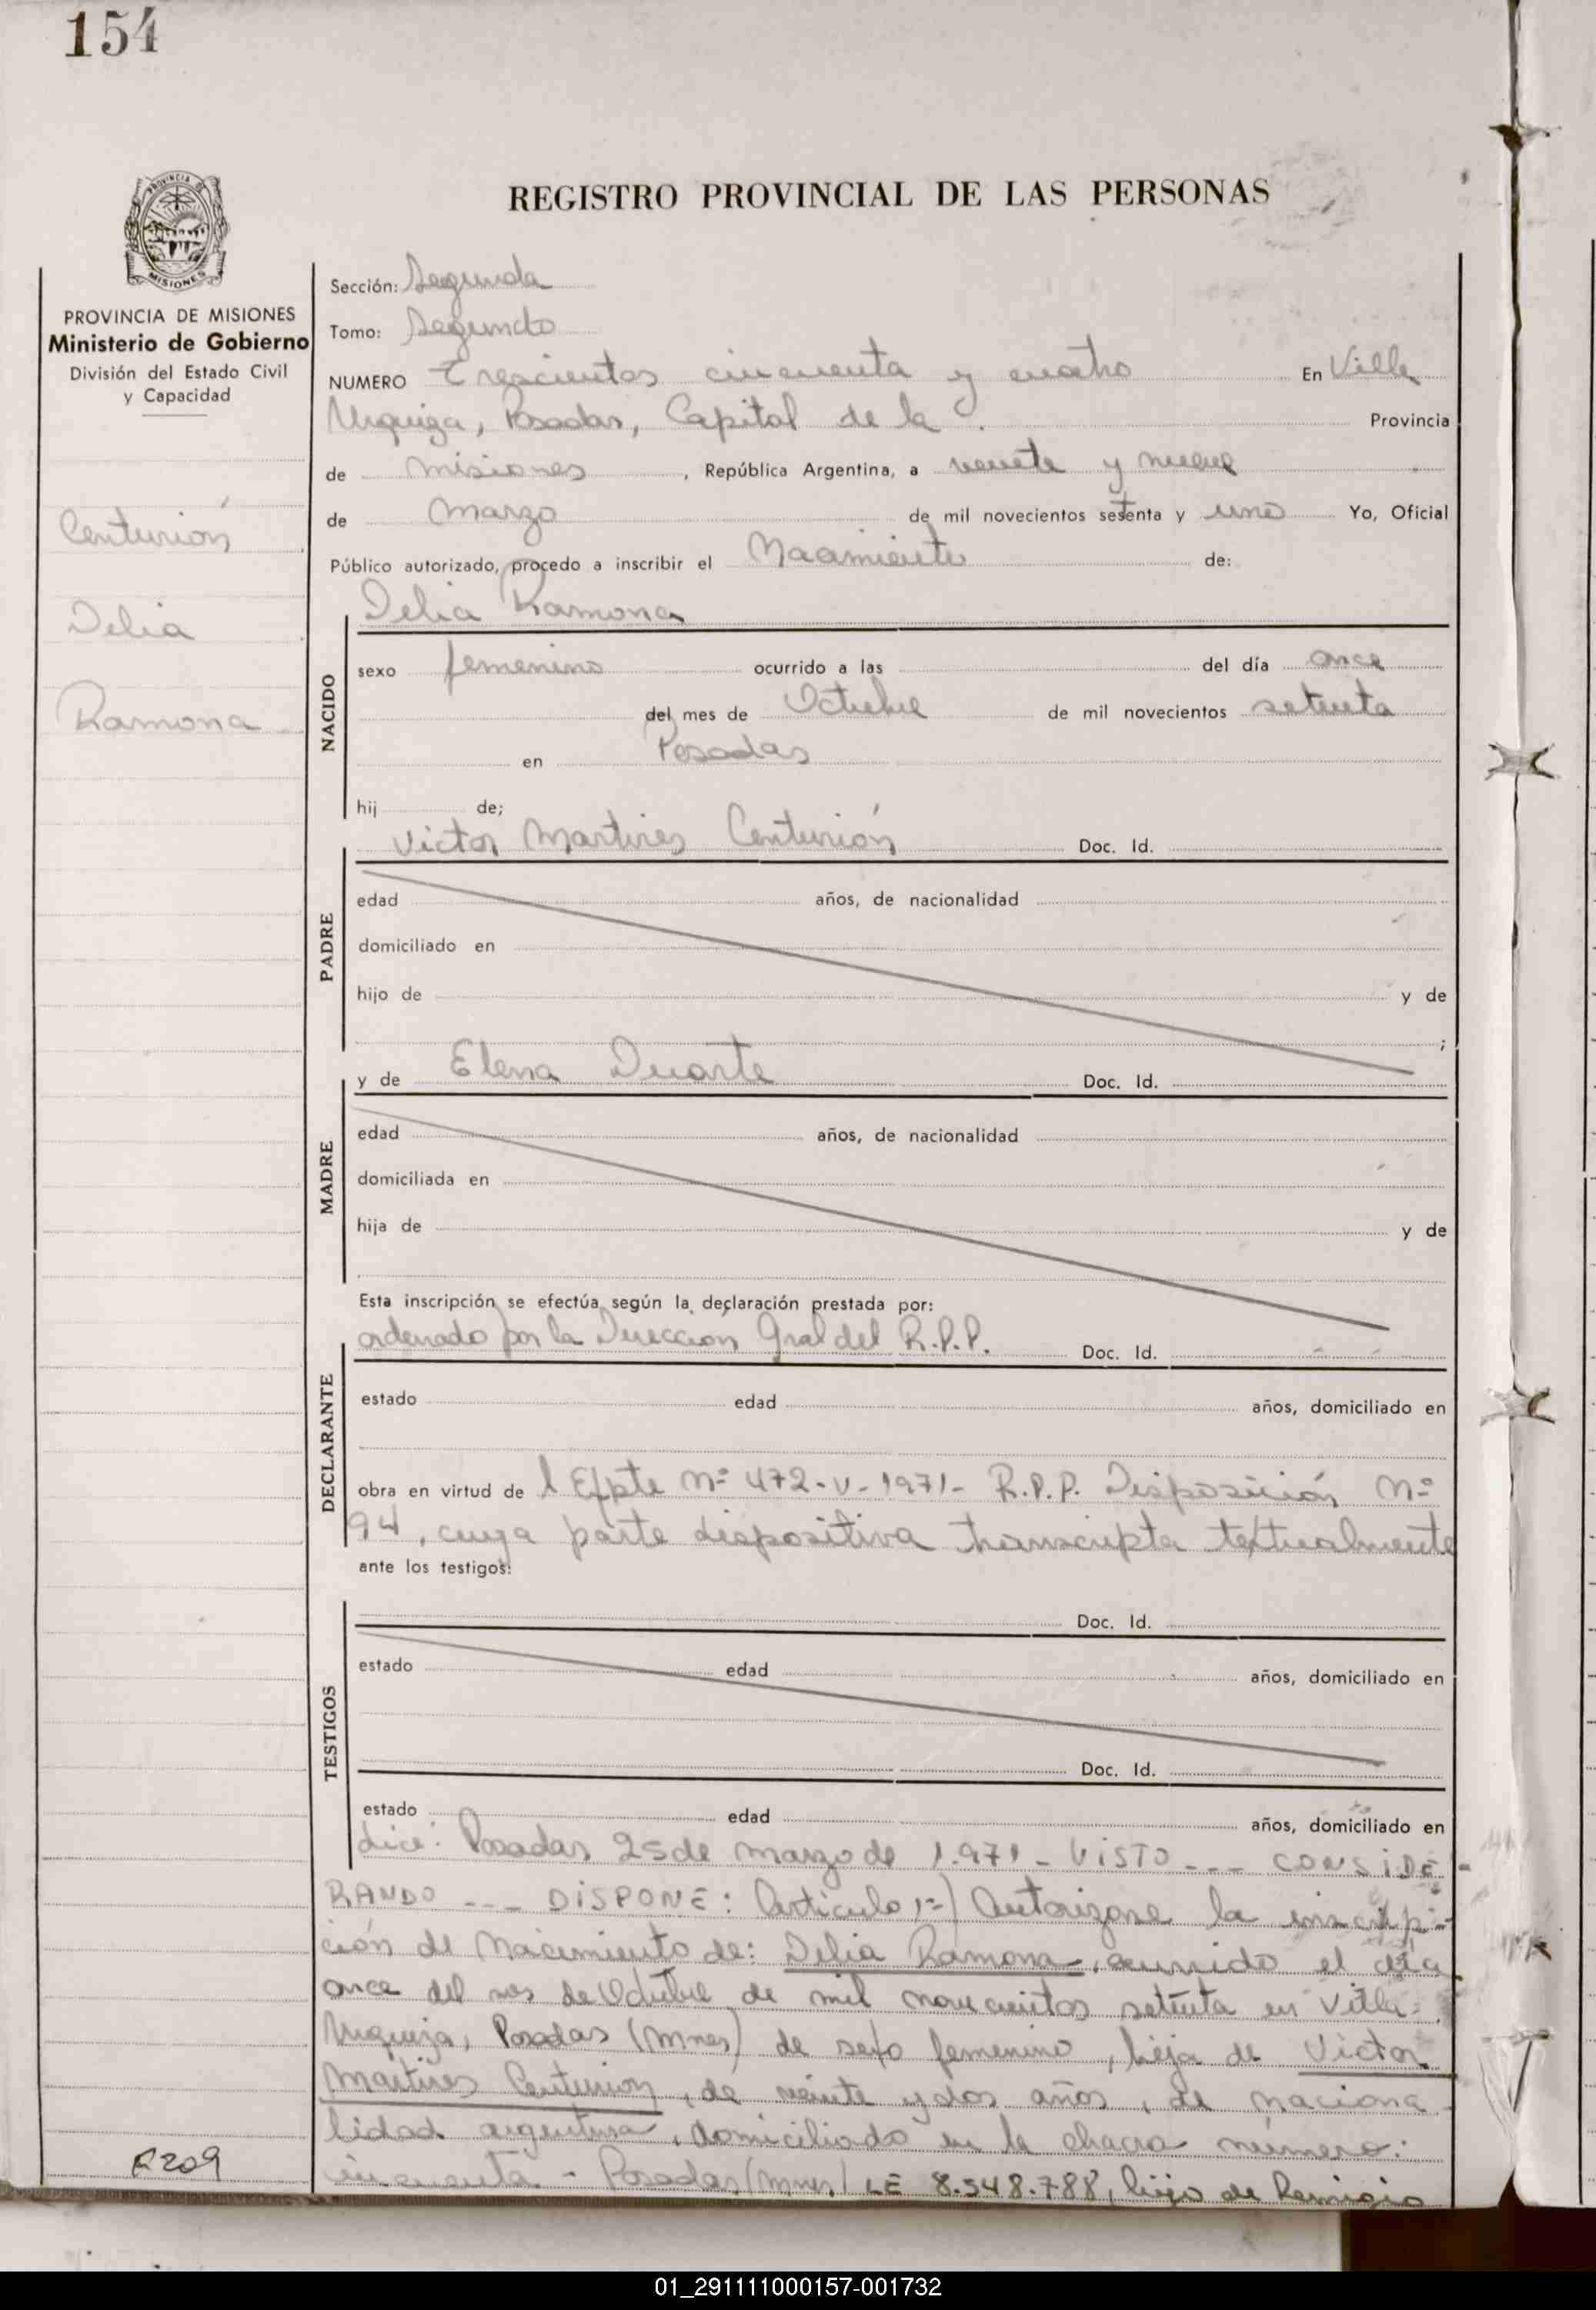 154
PROVINCIA DE
MISIONES
REGISTRO PROVINCIAL DE LAS PERSONAS
PROVINCIA DE MISIONES
Ministerio de Gobierno
División del Estado Civil
y Capacidad
Centurión
Delia
Ramona
F209
Sección: Segunda
Tomo: Segundo
NUMERO Trescientos cincuenta y cuatro En Villa
Urquiza, Posadas, Capital de la . Provincia
de Misiones, República Argentina, a veinte y nueve
de Marzo de mil novecientos setenta y uno Yo, Oficial
Público autorizado, procedo a inscribir el Nacimiento de:
Delia Ramona
NACIDO
sexo femenino ocurrido a las del día once
del mes de Octubre de mil novecientos setenta
en Posadas
hij de;
Victor Martires Centurión Doc. Id.
PADRE
edad años, de nacionalidad
domiciliado en
hijo de y de
;
y de Elena Duarte Doc. Id.
MADRE
edad años, de nacionalidad
domiciliada en
hija de y de
Esta inscripción se efectúa según la declaración prestada por:
ordenado por la Dirección Gral del R.P.P. Doc. Id.
DECLARANTE
estado edad años, domiciliado en
obra en virtud de l Expte Nº 472-V-1971- R.P.P. Disposición Nº
94, cuya parte dispositiva transcripta textualmente
ante los testigos:
Doc. Id.
TESTIGOS
estado edad años, domiciliado en
Doc. Id.
estado edad años, domiciliado en
dice: Posadas 25 de marzo de 1.971 - VISTO --- CONSIDE
RANDO --- DISPONE: Artículo 1º) Autorizase la inscrip-
ción de Nacimiento de: Delia Ramona, ocurrido el día
once del mes de Octubre de mil novecientos setenta en Villa
Urquiza, Posadas (Mnes) de sexo femenino, hija de Victor
Martires Centurion, de veinte y dos años, de naciona
lidad argentina, domiciliado en la chacra número:
cincuenta - Posadas (Mnes) LE 8.548.788, hijo de Remigio
01_291111000157-001732